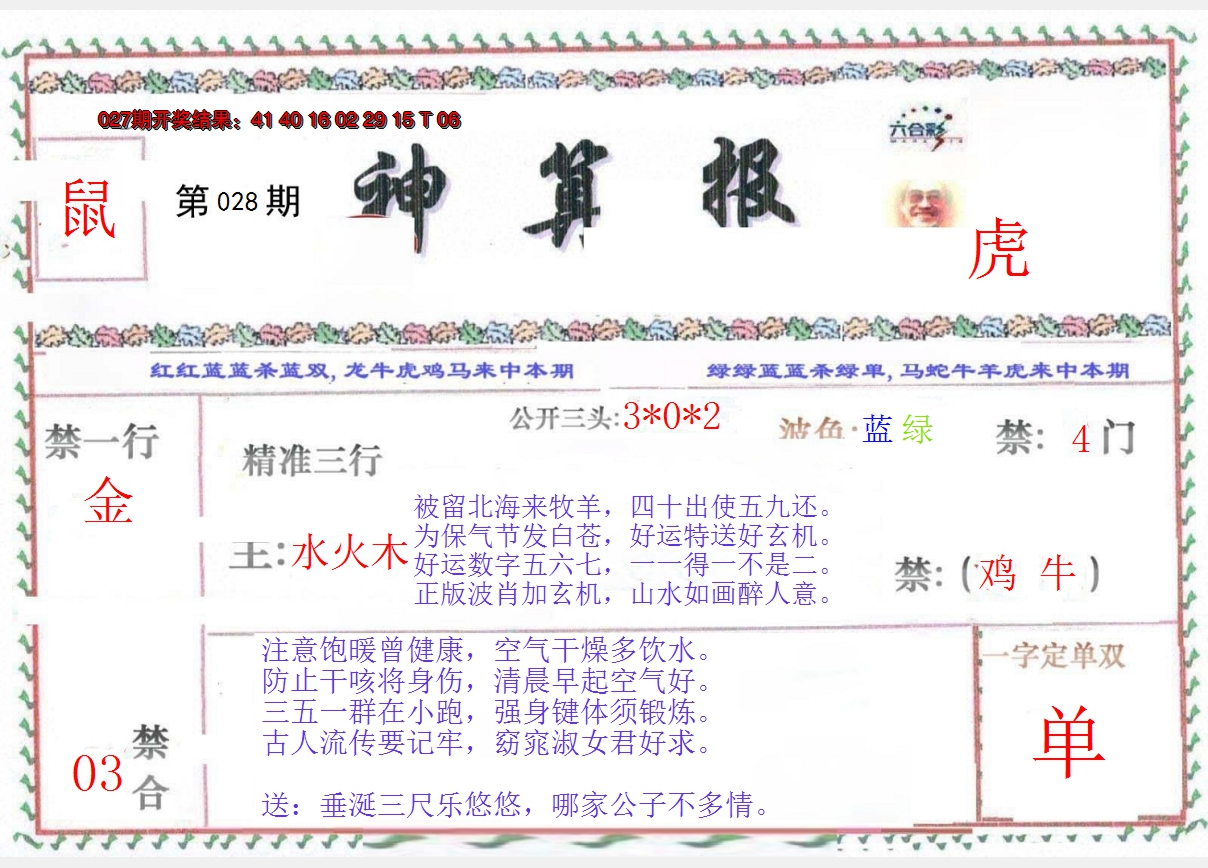 027期开奖结果：41 40 16 02 29 15 T 06
六合彩
鼠
第 028 期
神算报
虎
红红蓝蓝杀蓝双, 龙牛虎鸡马来中本期
绿绿蓝蓝杀绿单, 马蛇牛羊虎来中本期
禁一行
金
精准三行
主: 水火木
公开三头: 3*0*2
波色: 蓝 绿
禁: 4 门
被留北海来牧羊，四十出使五九还。
为保气节发白苍，好运特送好玄机。
好运数字五六七，一一得一不是二。
正版波肖加玄机，山水如画醉人意。
禁: (鸡 牛)
03 禁合
注意饱暖曾健康，空气干燥多饮水。
防止干咳将身伤，清晨早起空气好。
三五一群在小跑，强身键体须锻炼。
古人流传要记牢，窈窕淑女君好求。
送：垂涎三尺乐悠悠，哪家公子不多情。
一字定单双
单